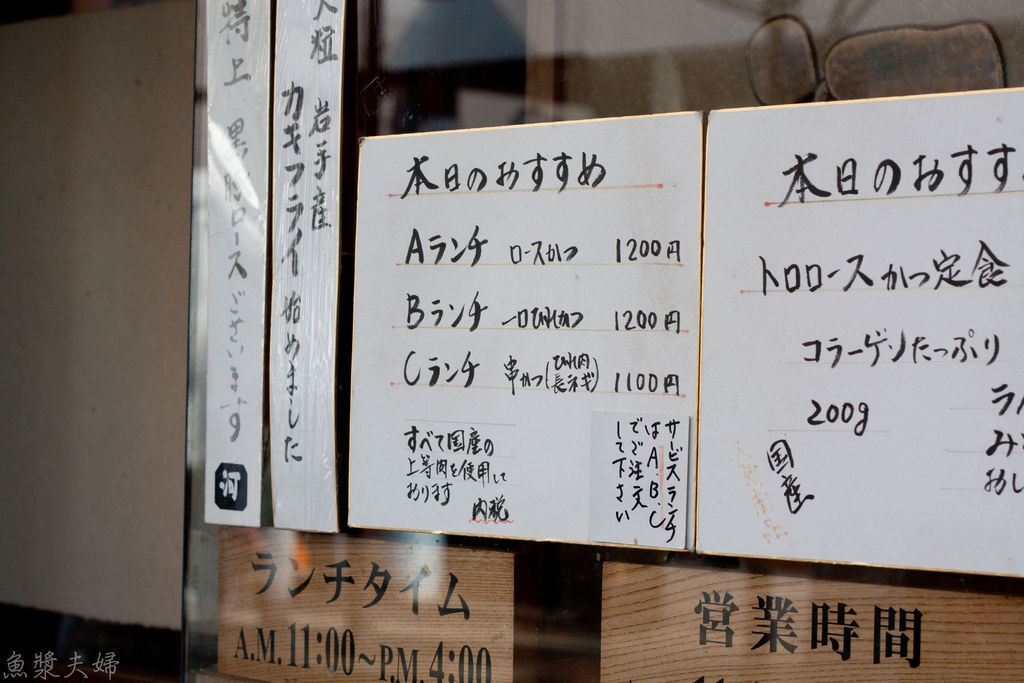 特上 黒豚ロースございます
河
大粒 岩手産
カキフライ 始めました
本日のおすすめ
Aランチ ロースかつ 1200円
Bランチ 一口ひれかつ 1200円
Cランチ 串かつ(ひれ肉 長ネギ) 1100円
すべて国産の
上等肉を使用して
おります
内税
サービスランチ
はA.B.C
でご注文
して下さい
本日のおすす
トロロースかつ定食
コラーゲンたっぷり
200g
国産
ランチタイム
A.M.11:00~P.M.4:00
営業時間
魚漿夫婦